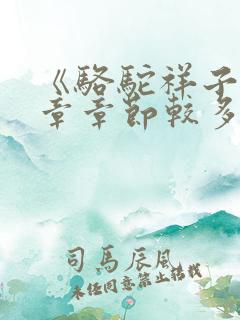 《骆驼祥子
章章节较多
司马辰风
未经同意禁止搭载